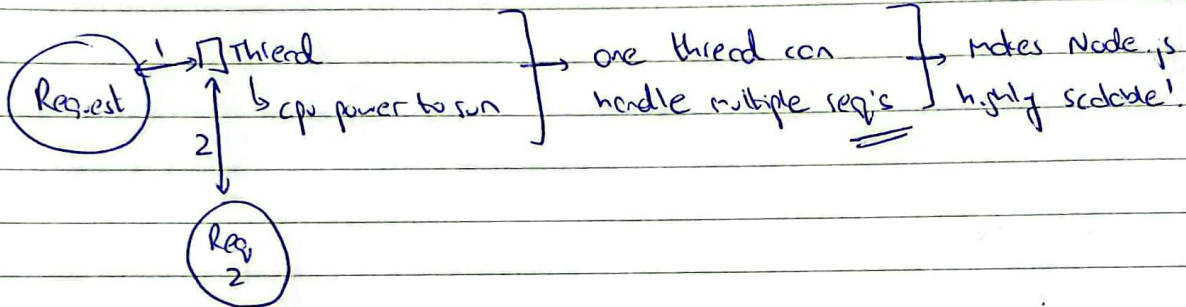 1
Request
Thread
↳ cpu power to run
→ one thread can
handle multiple req's
→ makes Node.js
highly scalable!
2
Req
2